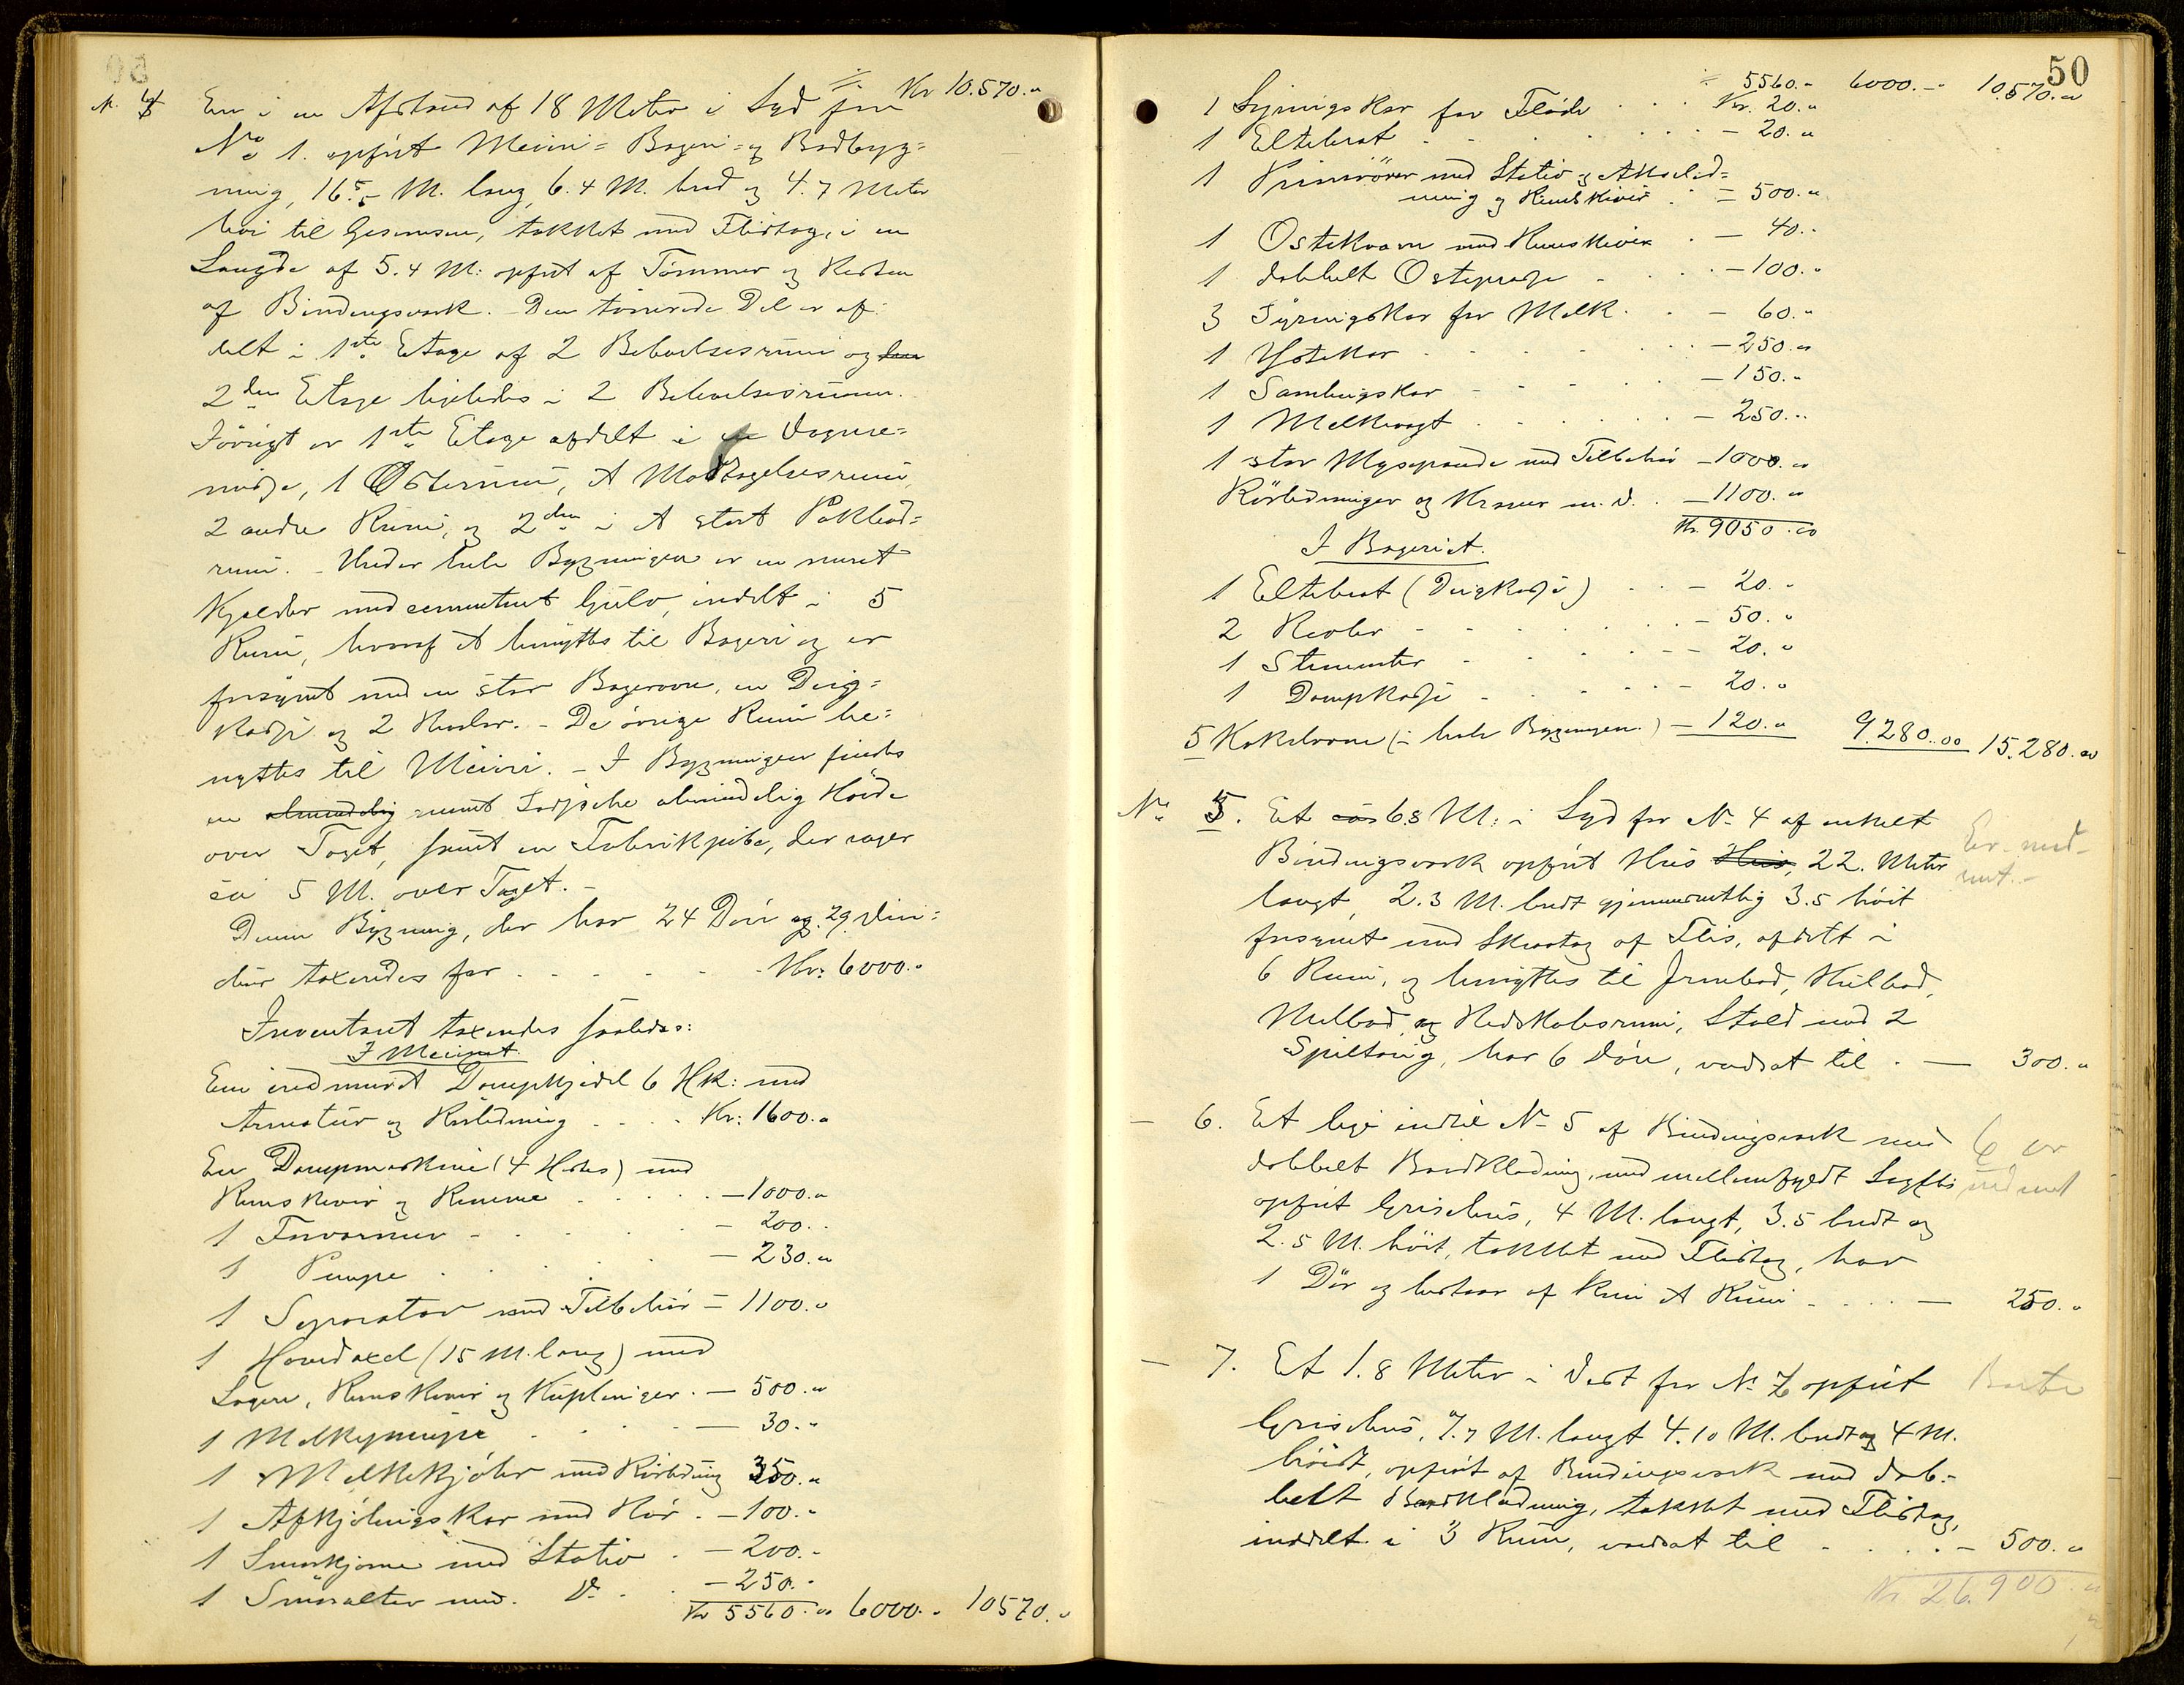 Kr 10.570.„
N. 4 En i en Afstand af 18 Meter i Syd for
No 1. opført Meieri= Bageri= og Bodbyg=
ning, 16.5 M. lang, 6.4 M. bred og 4.7 Meter
høi til Gesimsen, tækket med Flistag, i en
Længde af 5.4 M: opført af Tømmer og Resten
af Bindingsværk. Den tømrede Del er af=
delt i 1ste Etage af 2 Beboelsesrum og
2den Etage ligeledes i 2 Beboelsesrum.
Iøvrigt er 1ste Etage afdelt i Vogne=
, 1 Osterum, et Modtagelsesrum,
2 andre Rum, og 2den i et stort Pakbod=
rum. - Under hele Bygningen er en muret
Kjælder med cementeret Gulv, inddelt i 5
Rum, hvoraf et benyttes til Bageri og er
forsynet med en stor Bagerovn, en Deig=
kasse og 2 Reoler. - De øvrige Rum be=
nyttes til Meieri. - I Bygningen findes
en almindelig muret almindelig Høide
over Taget, samt en Fabrikpibe, der rager
ca 5 M. over Taget. -
Denne Bygning, der har 24 Døre og 29 Vin=
duer taxeredes for - - - - - Kr: 6000.„
Inventaret taxeredes saaledes:
I Meieriet.
En indmuret Dampkjedel 6 HK: med
Armatur og Rørledning . . . . Kr: 1600.„
En Dampmaskine (4 Hestes) med
Remskiver og Remme . . . . . — 1000.„
1 Forvarmer - - - — 200. „
1 Pumpe . . . . — 230.„
1 Separator med Tilbehør — 1100.„
1 Hovedaxel (15 M. lang) med
Lagere, Remskiver og Kuplinger . — 500.„
1 Melkepumpe . . . — 30.„
1 Melkekjøler med Rørledning 350.„
1 Afkjølingskar med Rør . — 100.„
1 Smørkjærne med Stativ . — 200.„
1 Smøralter med Do . — 250.„
Kr 5560.„ 6000.„ 10570.„
50
5560.„ 6000.„ 10.570.„
1 Syrningskar for Fløde . . . Kr. 20.„
1 Eltebret - - . . . . - 20.„
1 Primrører med Stativ og Axelled=
ning og Remskiver . — 500.„
1 Ostekværn med Remskiver . — 40.„
1 dobbelt Ostepresse - . . . — 100.„
3 Syrningskar for Melk . . — 60.„
1 Ystekar . - - - . . — 250.„
1 Samlingskar - - - . — 150.„
1 Melkevægt . . . . — 250.„
1 stor Mysepande med Tilbehør — 1000.„
Rørledninger og Kraner m. v. . — 1100.„
Kr. 9050.„
I Bageriet.
1 Eltebret (Deigkasse) . . — 20.„
2 Reoler - - - . . . — 50.„
1 - . . . - — 20.„
1 Dampkasse - . . . — 20.„
5 Kakelovne (i hele Bygningen.) — 120.„ 9.280.00 15.280.„
No 5. Et 6.8 M: i Syd for No 4 af enkelt
Bindingsværk opført Hus Hus, 22. Meter
langt, 2.3 M. bredt gjennemsnitlig 3.5 høit
forsynet med Skraatag af Flis, afdelt i
6 Rum, og benyttes til Jernbod, Kulbod,
Melbod, og Redskabsrum, Stald med 2
Spiltaug, har 6 Døre, værdsat til . — 300.„
Er ned-
revet. -
— 6. Et lige indtil No 5 af Bindingsværk med
dobbelt Bordklædning, med mellemfyldt Sagflis
opført Grisehus, 4 M. langt, 3.5 bredt og
2.5 M. høit, tækket med Flistag, har
1 Dør og bestaar af kun et Rum - . . . — 250.„
6 er
nedrevet
— 7. Et 1.8 Meter i Vest for No 6 opført
Grisehus, 7.7 M. langt 4.10 M. bredt og 4 M.
høidt, opført af Bindingsværk med dob-
belt Bordklædning, tækket med Flistag,
inddelt i 3 Rum, værdsat til - . . . — 500.„
Borte
Kr 26.900.„